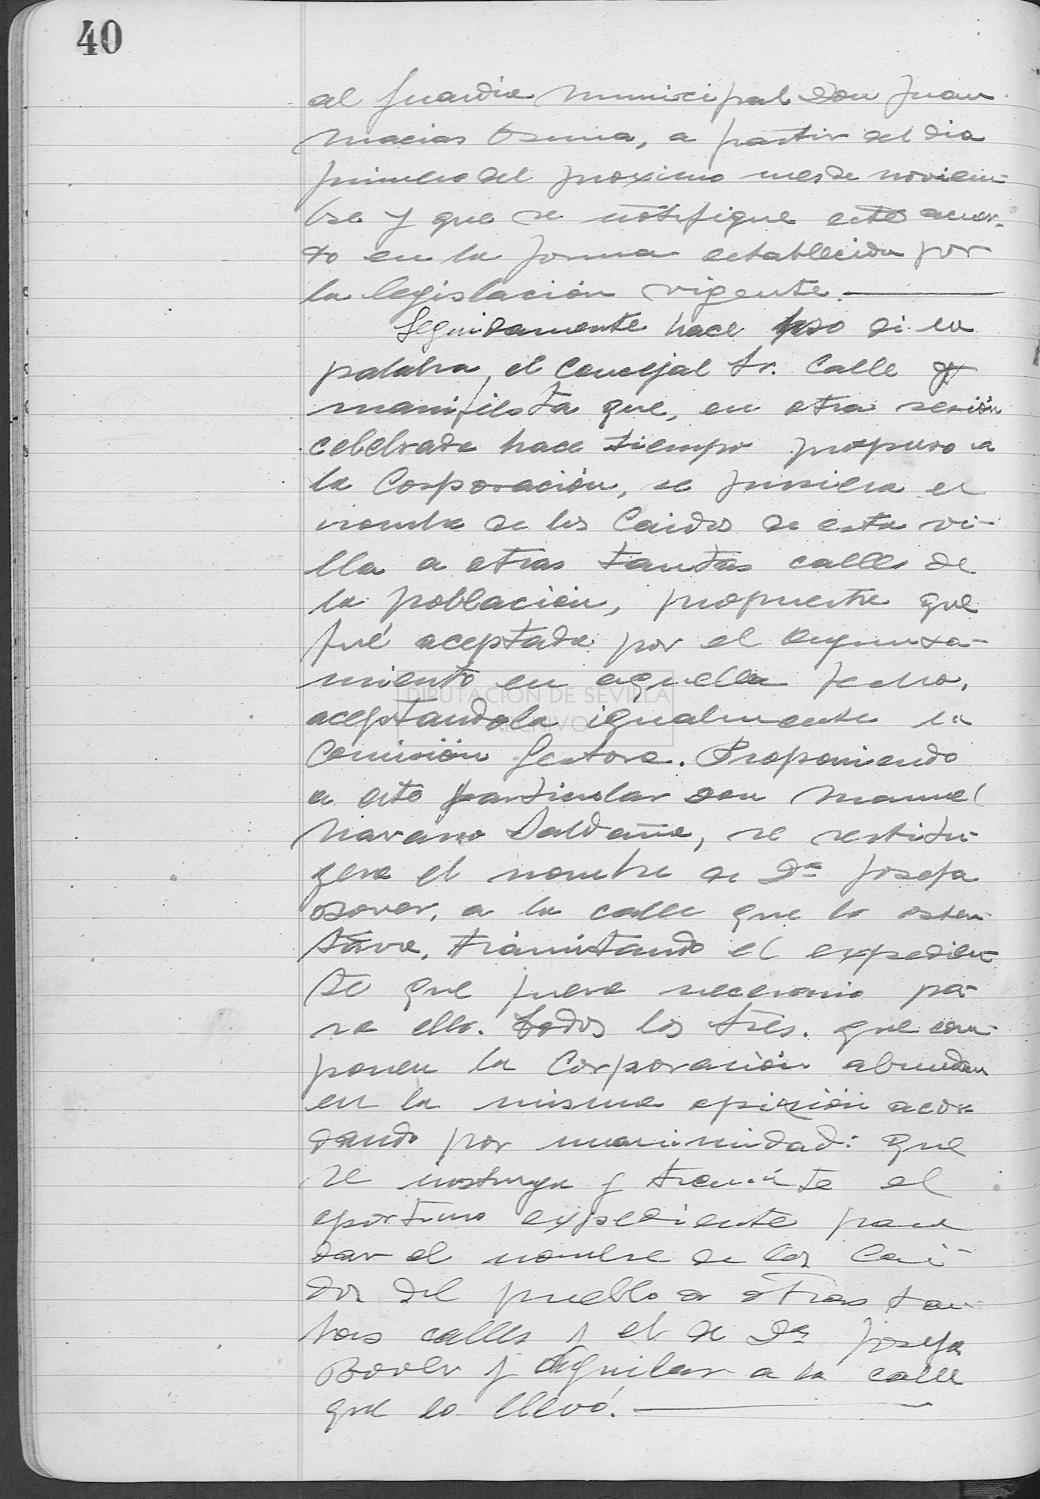 40
al Guardia Municipal Don Juan
Macias Osuna, a partir del dia
primero del proximo mes de noviem-
bre y que se notifique este acuer-
do en la forma establecida por
la legislación vigente.
Seguidamente hace uso de la
palabra, el Concejal Sr. Calle y
manifiesta que, en otra sesión
celebrada hace tiempo propuso a
la Corporación, se pusiera el
nombre de los Caidos de esta vi-
lla a otras tantas calles de
la población, propuesta que
fué aceptada por el Ayunta-
miento en aquella fecha,
aceptandola igualmente la
Comisión Gestora. Proponiendo
a este particular don Manuel
Navarro Saldaña, se restitu-
yera el nombre de Dª Josefa
Bover, a la calle que lo osten-
tava, tramitando el expedien-
te que fuera necesario pa-
ra ello. Todos los Sres. que com-
ponen la Corporación abundan
en la misma opinión acor-
dando por unanimidad: que
se instruya y tramite el
oportuno expediente para
dar el nombre de los Cai-
dos del pueblo a otras tan-
tas calles y el de Dª Josefa
Bover y Aguilar a la calle
que lo llevó.
DIPUTACIÓN DE SEVILLA
ARCHIVO